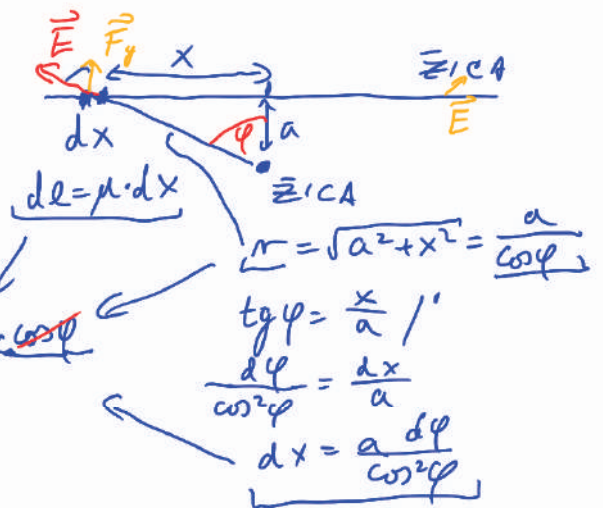 E⃗ F⃗y x ŽICA
E⃗
dx φ a
ŽICA
dl = μ·dx
r = √(a² + x²) = a/cosφ
cosφ
tg φ = x/a /'
dφ/cos²φ = dx/a
dx = a dφ/cos²φ